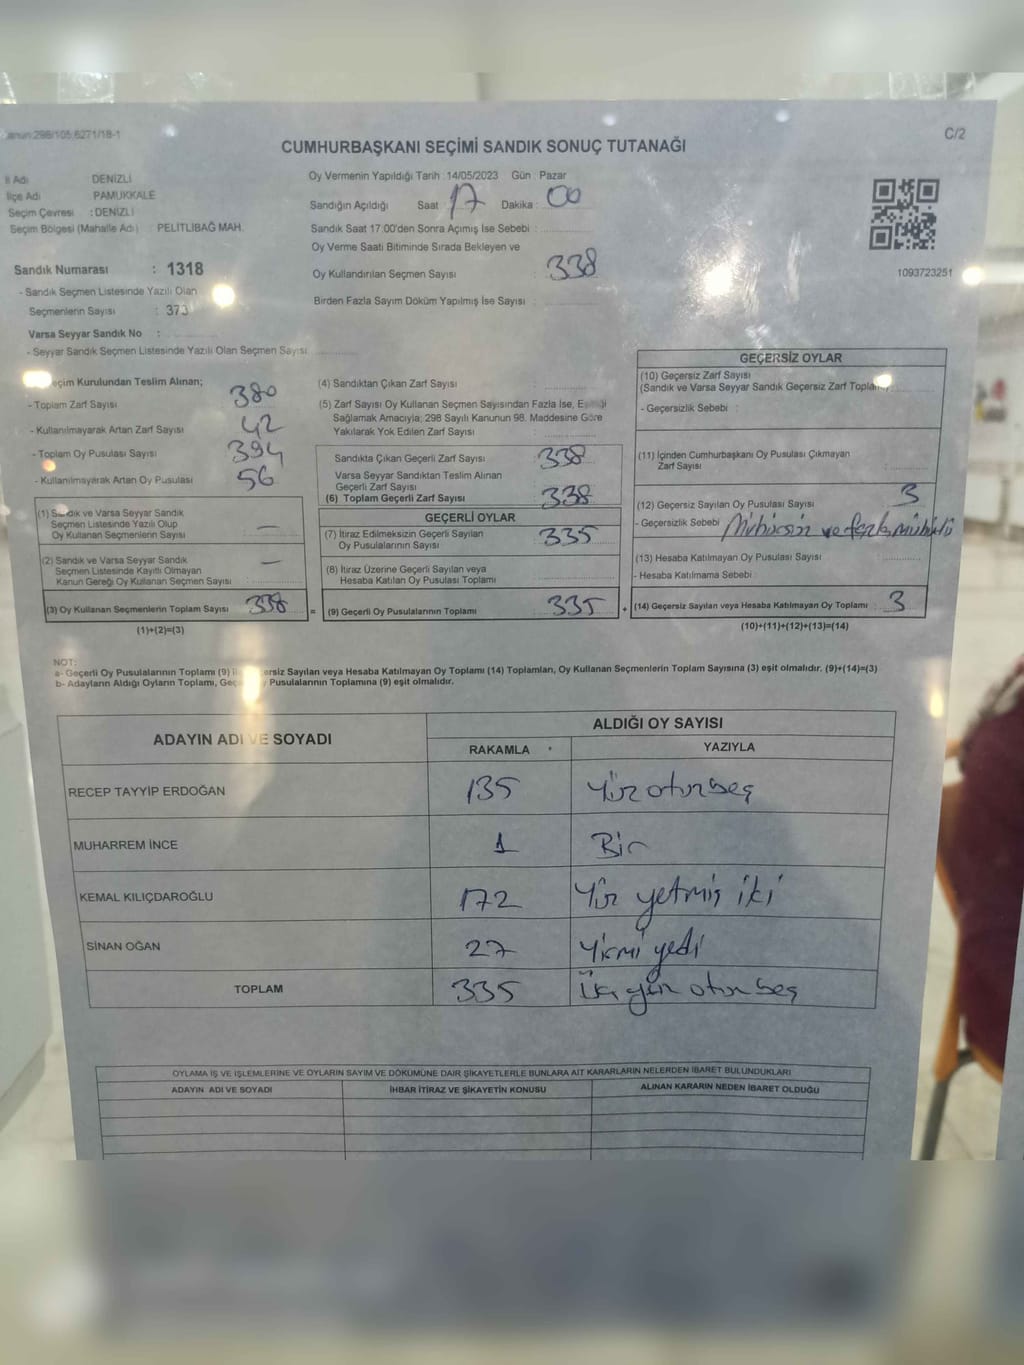 298/105;6271/18-1
C/2
CUMHURBAŞKANI SEÇİMİ SANDIK SONUÇ TUTANAĞI
İl Adı DENİZLİ
İlçe Adı PAMUKKALE
Seçim Çevresi : DENİZLİ
Seçim Bölgesi (Mahalle Adı) : PELİTLİBAĞ MAH.
Sandık Numarası : 1318
- Sandık Seçmen Listesinde Yazılı Olan
Seçmenlerin Sayısı : 373
Varsa Seyyar Sandık No :
- Seyyar Sandık Seçmen Listesinde Yazılı Olan Seçmen Sayısı
Oy Vermenin Yapıldığı Tarih : 14/05/2023 Gün : Pazar
Sandığın Açıldığı Saat : 17 Dakika : 00
Sandık Saat 17.00'den Sonra Açımış İse Sebebi :
Oy Verme Saati Bitiminde Sırada Bekleyen ve
Oy Kullandırılan Seçmen Sayısı : 338
Birden Fazla Sayım Döküm Yapılmış İse Sayısı :
1093723251
eçim Kurulundan Teslim Alınan;
- Toplam Zarf Sayısı 380
- Kullanılmayarak Artan Zarf Sayısı 42
- Toplam Oy Pusulası Sayısı 394
- Kullanılmayarak Artan Oy Pusulası 56
(1) Sandık ve Varsa Seyyar Sandık
Seçmen Listesinde Yazılı Olup
Oy Kullanan Seçmenlerin Sayısı : —
(2) Sandık ve Varsa Seyyar Sandık
Seçmen Listesinde Kayıtlı Olmayan
Kanun Gereği Oy Kullanan Seçmen Sayısı : —
(3) Oy Kullanan Seçmenlerin Toplam Sayısı : 338 =
(1)+(2)=(3)
(4) Sandıktan Çıkan Zarf Sayısı :
(5) Zarf Sayısı Oy Kullanan Seçmen Sayısından Fazla İse, Eşitliği
Sağlamak Amacıyla; 298 Sayılı Kanunun 98. Maddesine Göre
Yakılarak Yok Edilen Zarf Sayısı :
Sandıkta Çıkan Geçerli Zarf Sayısı : 338
Varsa Seyyar Sandıktan Teslim Alınan
Geçerli Zarf Sayısı
(6) Toplam Geçerli Zarf Sayısı : 338
GEÇERLİ OYLAR
(7) İtiraz Edilmeksizin Geçerli Sayılan
Oy Pusulalarının Sayısı : 335
(8) İtiraz Üzerine Geçerli Sayılan veya
Hesaba Katılan Oy Pusulası Toplamı :
(9) Geçerli Oy Pusulalarının Toplamı : 335 +
GEÇERSİZ OYLAR
(10) Geçersiz Zarf Sayısı
(Sandık ve Varsa Seyyar Sandık Geçersiz Zarf Toplamı)
- Geçersizlik Sebebi :
(11) İçinden Cumhurbaşkanı Oy Pusulası Çıkmayan
Zarf Sayısı :
(12) Geçersiz Sayılan Oy Pusulası Sayısı : 3
- Geçersizlik Sebebi : Mühürsüz ve fazla mühürlü
(13) Hesaba Katılmayan Oy Pusulası Sayısı :
- Hesaba Katılmama Sebebi :
(14) Geçersiz Sayılan veya Hesaba Katılmayan Oy Toplamı : 3
(10)+(11)+(12)+(13)=(14)
NOT:
a- Geçerli Oy Pusulalarının Toplamı (9) ersiz Sayılan veya Hesaba Katılmayan Oy Toplamı (14) Toplamları, Oy Kullanan Seçmenlerin Toplam Sayısına (3) eşit olmalıdır. (9)+(14)=(3)
b- Adayların Aldığı Oyların Toplamı, Pusulalarının Toplamına (9) eşit olmalıdır.
ADAYIN ADI VE SOYADI
ALDIĞI OY SAYISI
RAKAMLA
YAZIYLA
RECEP TAYYİP ERDOĞAN 135 Yüz otuz beş
MUHARREM İNCE 1 Bir
KEMAL KILIÇDAROĞLU 172 Yüz yetmiş iki
SİNAN OĞAN 27 Yirmi yedi
TOPLAM 335 Üç yüz otuz beş
OYLAMA İŞ VE İŞLEMLERİNE VE OYLARIN SAYIM VE DÖKÜMÜNE DAİR ŞİKAYETLERLE BUNLARA AİT KARARLARIN NELERDEN İBARET BULUNDUKLARI
ADAYIN ADI VE SOYADI
İHBAR İTİRAZ VE ŞİKAYETİN KONUSU
ALINAN KARARIN NEDEN İBARET OLDUĞU